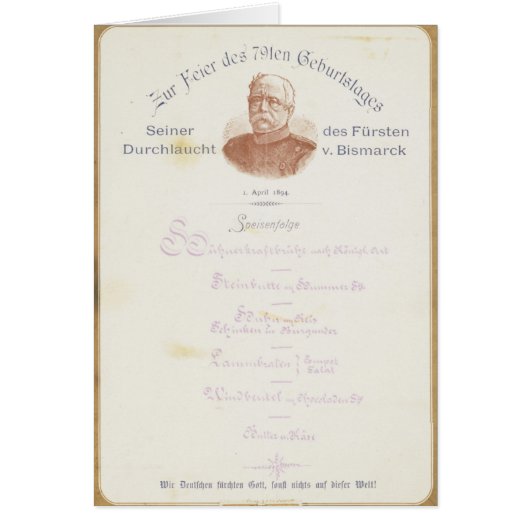 Zur Feier des 79ten Geburtstages
Seiner Durchlaucht
des Fürsten v. Bismarck
1. April 1894.
Speisenfolge
Hühnerkraftbrühe nach Königl. Art
Steinbutte m Hummer
Huhn m Reis
Schinken in Burgunder
Lammbraten
Salat
Windbeutel m Chocoladen
Butter u. Käse
Wir Deutschen fürchten Gott, sonst nichts auf dieser Welt!